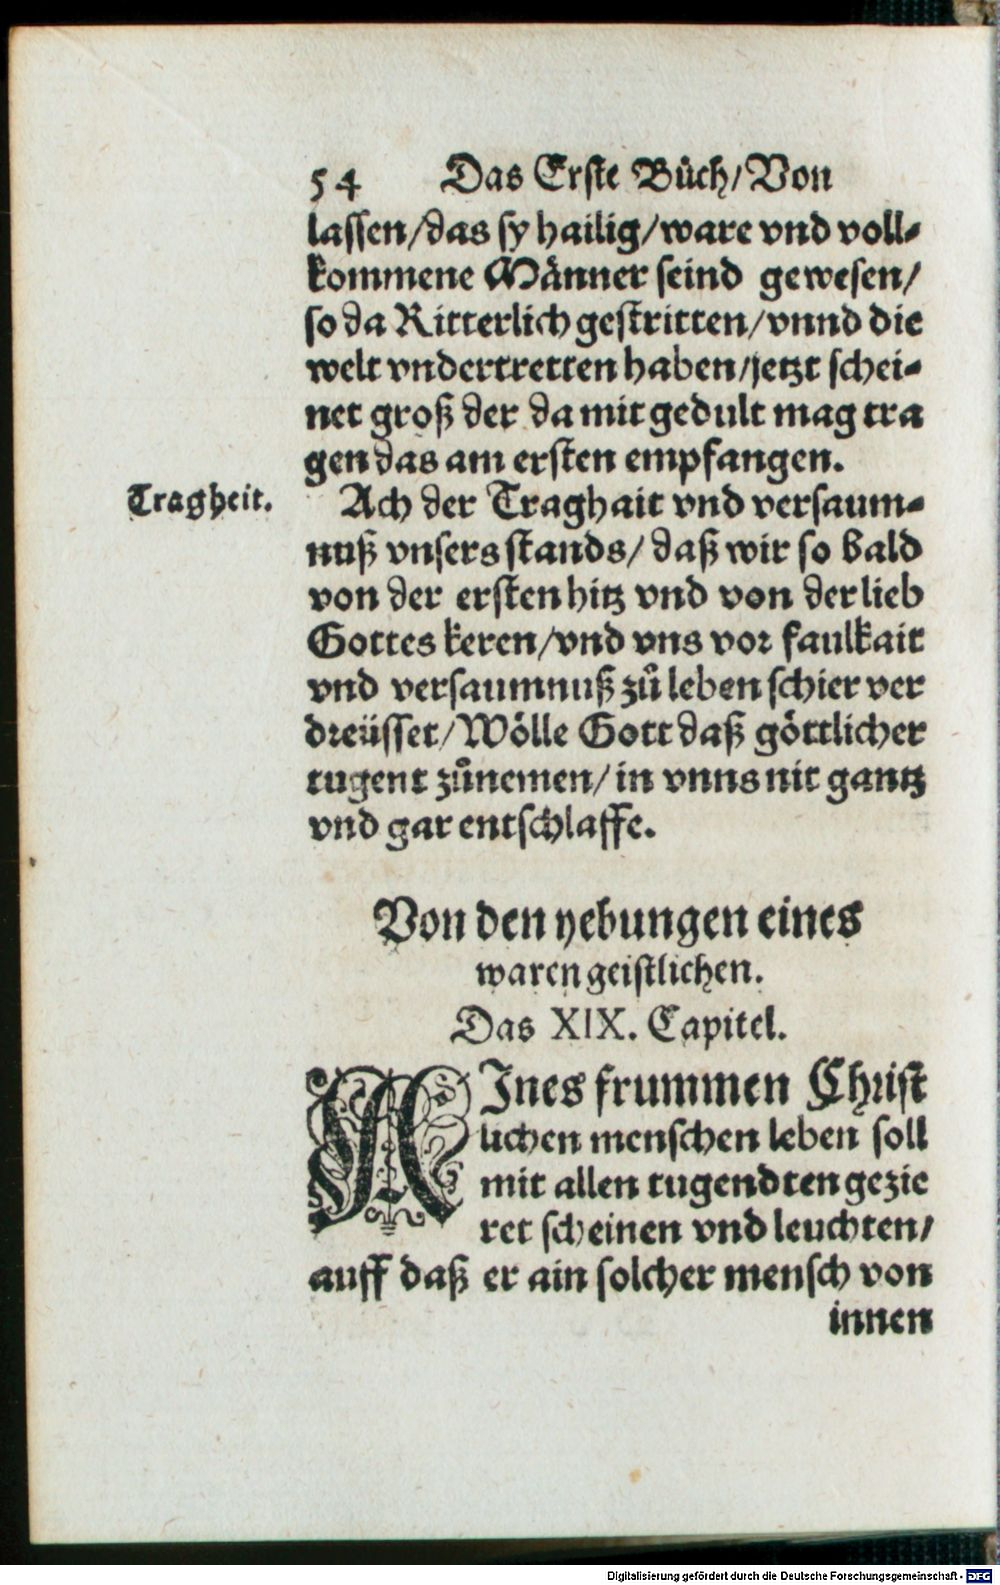 54 Das Erste Bůch/Von
lassen/das sy hailig/ware vnd voll-
kommene Männer seind gewesen/
so da Ritterlich gestritten/vnnd die
welt vndertretten haben/jetzt schei-
net groß der da mit gedult mag tra
gen das am ersten empfangen.
Tragheit.
Ach der Traghait vnd versaum-
nuß vnsers stands/ daß wir so bald
von der ersten hitz vnd von der lieb
Gottes keren/vnd vns vor faulkait
vnd versaumnuß zů leben schier ver
dreüsset/Wölle Gott daß göttlicher
tugent zůnemen/in vnns nit gantz
vnd gar entschlaffe.
Von den yebungen eines
waren geistlichen.
Das XIX. Capitel.
AInes frummen Christ
lichen menschen leben soll
mit allen tugendten gezie
ret scheinen vnd leuchten/
auff daß er ain solcher mensch von
innen
Digitalisierung gefördert durch die Deutsche Forschungsgemeinschaft - DFG